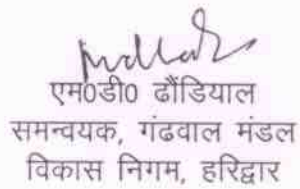 एम०डी० ढौंडियाल
समन्वयक, गंढवाल मंडल
विकास निगम, हरिद्वार